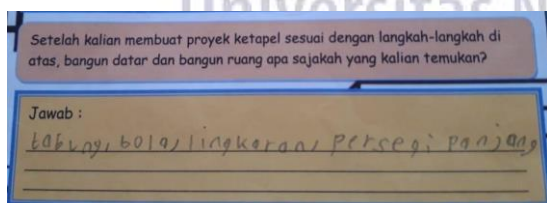 Setelah kalian membuat proyek ketapel sesuai dengan langkah-langkah di
atas, bangun datar dan bangun ruang apa sajakah yang kalian temukan?
Jawab :
tabung, bola, lingkaran, persegi panjang